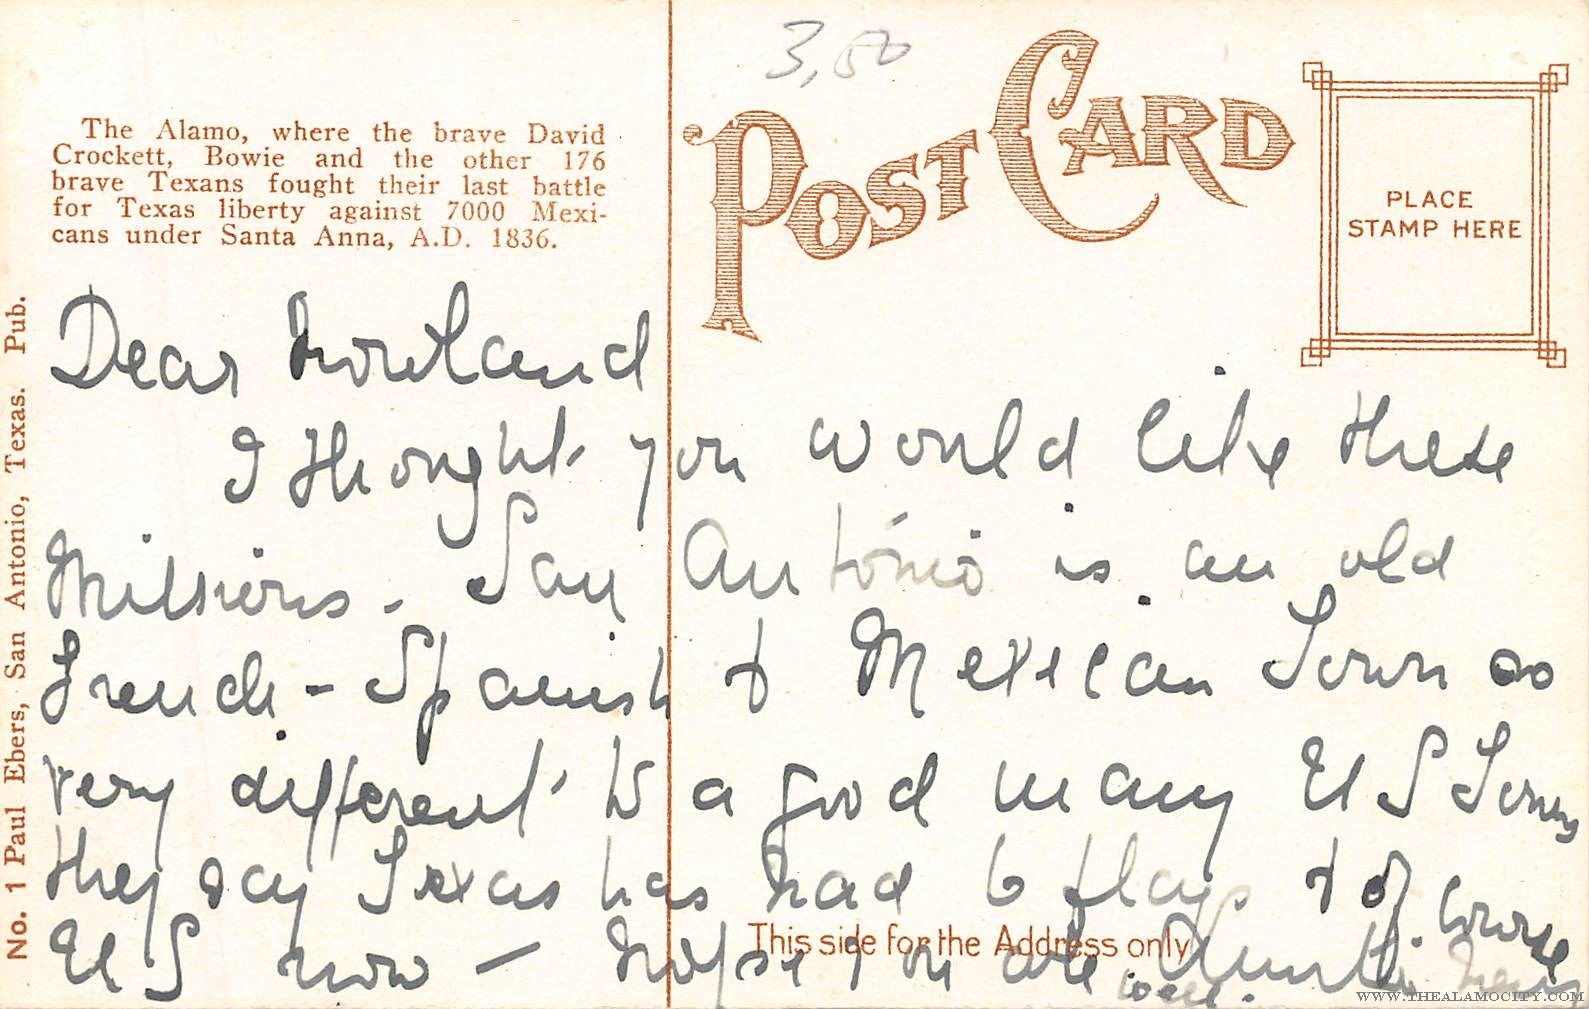 3,50
POST CARD
PLACE
STAMP HERE
The Alamo, where the brave David
Crockett, Bowie and the other 176
brave Texans fought their last battle
for Texas liberty against 7000 Mexi-
cans under Santa Anna, A.D. 1836.
No. 1 Paul Ebers, San Antonio, Texas. Pub.
Dear
I thought you would like these
Missions - San Antonio is an old
French - Spanish & Mexican Town so
very different to a good many U S Towns
they say Texas has had 6 flags & of course
U S now - hope you are well. Auntie
This side for the Address only
WWW.THEALAMOCITY.COM